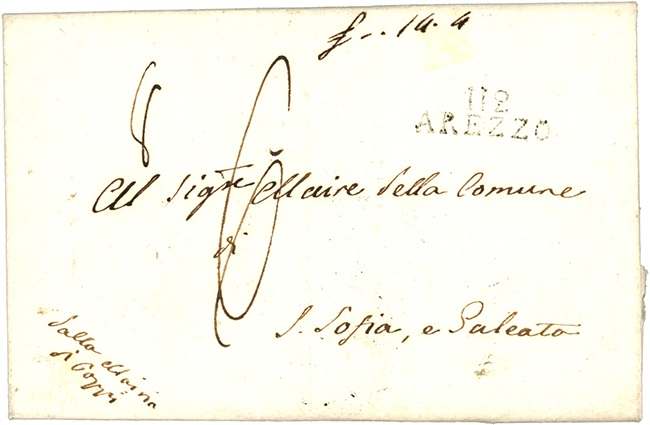 f -. 14. 4
8
112
AREZZO
6
Al Sigre Maire della Comune
di
S. Sofia, e Galeata
Dalla Mairia
di Poppi